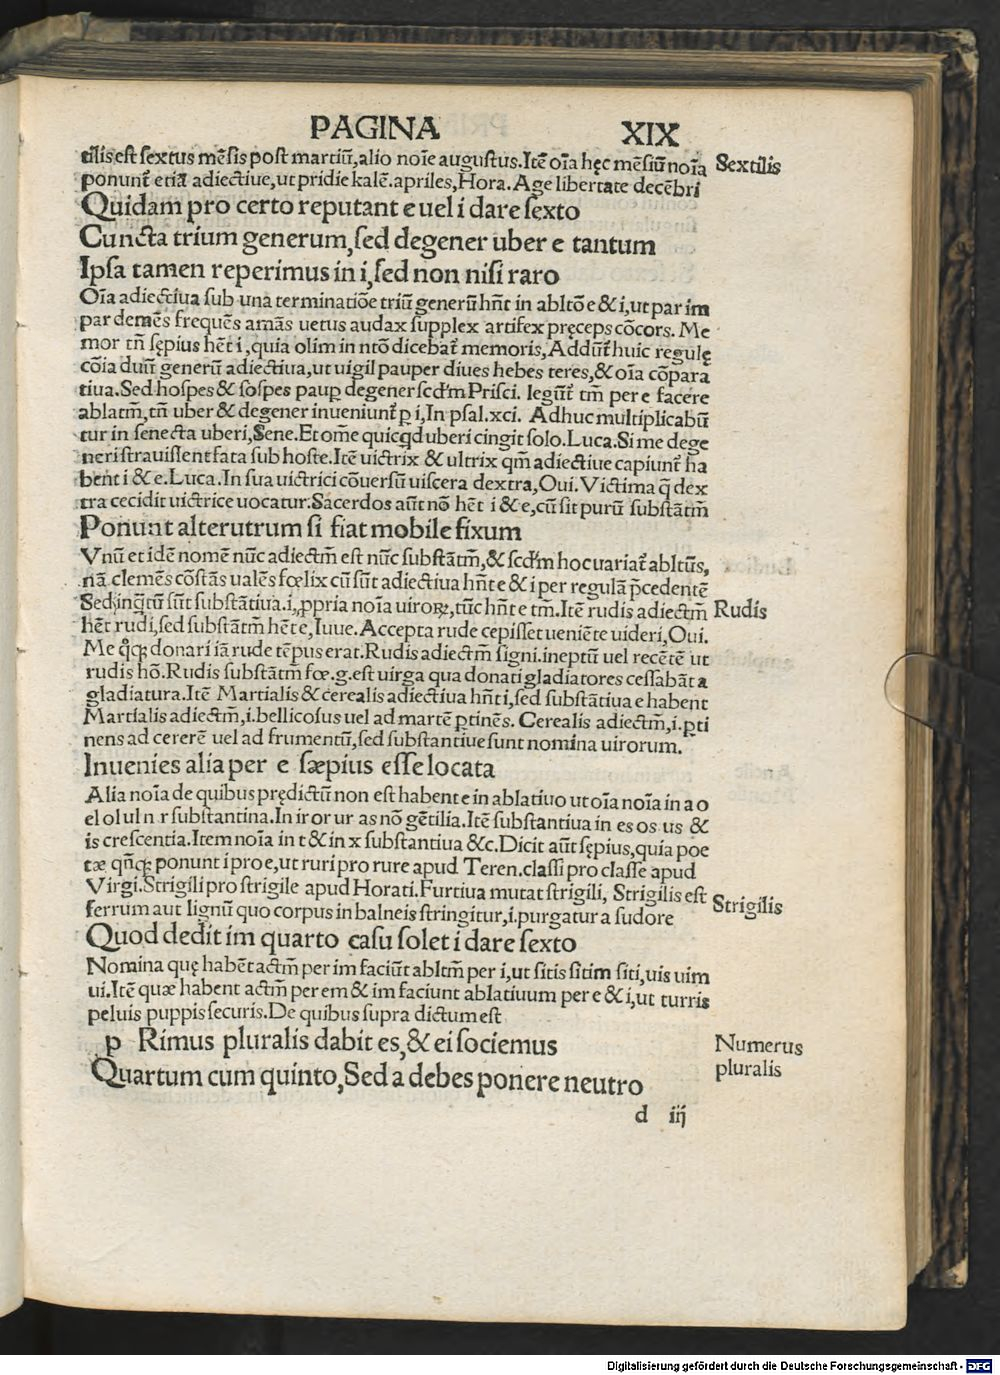 PAGINA XIX
tilis est sextus mēsis post martiū, alio noīe augustus. Itē oīa hęc mēsiū noīa Sextilis
ponunt᷑ etiā adiectiue, ut pridie kalē. apriles, Hora. Age libertate decēbri
Quidam pro certo reputant e uel i dare sexto
Cuncta trium generum, sed degener uber e tantum
Ipsa tamen reperimus in i, sed non nisi raro
Oīa adiectiua sub una terminatiōe triū generū hn̄t in abltō e & i, ut par im
par demēs frequēs amās uetus audax supplex artifex pręceps cōcors. Me
mor tn̄ sępius hēt i, quia olim in ntō dicebat᷑ memoris, Addūt᷑ huic regulę
cōia duū generū adiectiua, ut uigil pauper diues hebes teres, & oīa cōpara
tiua. Sed hospes & sospes paup̱ degener scd̄m Prisci. legūt᷑ tm̄ per e facere
ablatm̄, tn̄ uber & degener inueniunt᷑ p̱ i, In psal. xci. Adhuc multiplicabū
tur in senecta uberi, Sene. Et ome quicqd uberi cingit solo. Luca. Si me dege
neri strauissent fata sub hoste. Itē uictrix & ultrix qm̄ adiectiue capiunt᷑ ha
bent i & e. Luca. In sua uictrici cōuersū uiscera dextra, Oui. Victima q̄ dex
tra cecidit uictrice uocatur. Sacerdos aūt nō hēt i & e, cū sit purū substātm̄
Ponunt alterutrum si fiat mobile fixum
Vnū et idē nomē nūc adiectm̄ est nūc substātm̄, & scd̄m hoc uariat᷑ abltūs,
nā clemēs cōstās ualēs fœlix cū sūt adiectiua hn̄t e & i per regulā p̄cedentē
Sed inq̄tū sūt substātiua .i. ꝓpria noīa uiroꝝ, tūc hn̄t e tm̄. Itē rudis adiectm̄ Rudis
hēt rudi, sed substātm̄ hēt e, Iuue. Accepta rude cepisset ueniēte uideri, Oui.
Me qͦqꝫ donari iā rude tēpus erat. Rudis adiectm̄ signi. ineptū uel recētē ut
rudis hō. Rudis substātm̄ fœ. g. est uirga qua donati gladiatores cessabāt a
gladiatura. Itē Martialis & cerealis adiectiua hn̄t i, sed substātiua e habent
Martialis adiectm̄, i. bellicosus uel ad martē p̱tinēs. Cerealis adiectm̄, i. p̱ti
nens ad cererē uel ad frumentū, sed substantiue sunt nomina uirorum.
Inuenies alia per e sæpius esse locata
Alia noīa de quibus prędictū non est habent e in ablatiuo ut oīa noīa in a o
el ol ul n r substantina. In ir or ur as nō gētilia. Itē substantiua in es os us &
is crescentia. Item noīa in t & in x substantiua &c. Dicit aūt sępius, quia poe
tæ qn̄qꝫ ponunt i pro e, ut ruri pro rure apud Teren. classi pro classe apud
Virgi. Strigili pro strigile apud Horati. Furtiua mutat strigili, Strigilis est Strigilis
ferrum aut lignū quo corpus in balneis stringitur, i. purgatur a sudore
Quod dedit im quarto casu solet i dare sexto
Nomina quę habēt actm̄ per im faciūt abltm̄ per i, ut sitis sitim siti, uis uim
ui. Itē quæ habent actm̄ per em & im faciunt ablatiuum per e & i, ut turris
peluis puppis securis. De quibus supra dictum est
p Rimus pluralis dabit es, & ei sociemus Numerus
Quartum cum quinto, Sed a debes ponere neutro pluralis
d iij
Digitalisierung gefördert durch die Deutsche Forschungsgemeinschaft - DFG